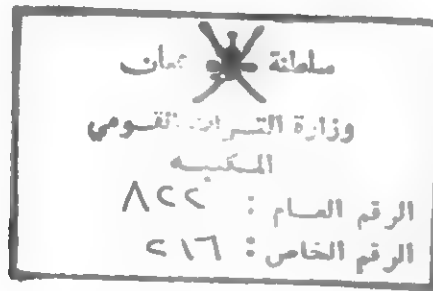 سلطنة عمان
وزارة التراث القومي
المكتبه
الرقم العام : ٨٢٢
الرقم الخاص : ٢١٦